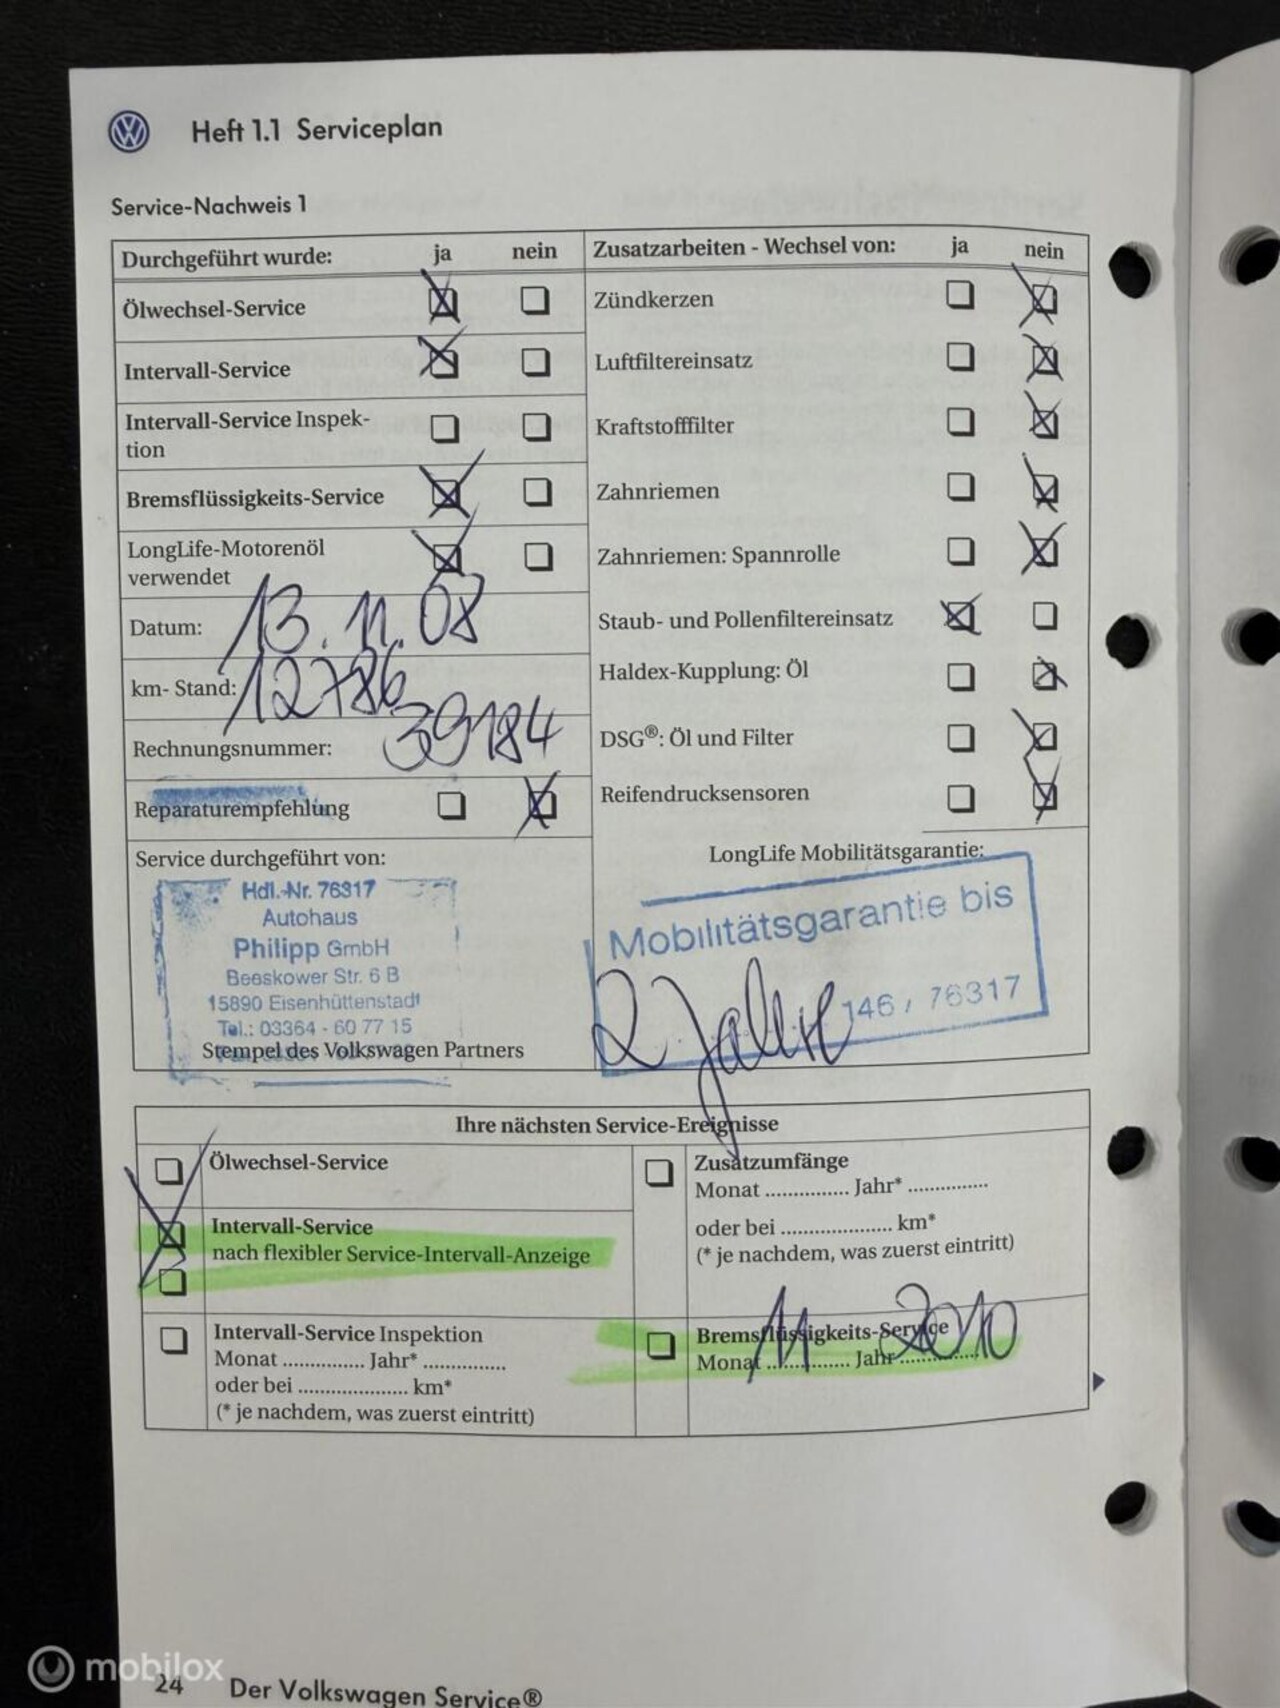 Heft 1.1 Serviceplan
Service-Nachweis 1
Durchgeführt wurde: ja nein
Ölwechsel-Service
Intervall-Service
Intervall-Service Inspek-
tion
Bremsflüssigkeits-Service
LongLife-Motorenöl
verwendet
Datum: 13.11.08
km- Stand: 12786
Rechnungsnummer: 39184
Reparaturempfehlung
Service durchgeführt von:
Hdl.-Nr. 76317
Autohaus
Philipp GmbH
Beeskower Str. 6 B
15890 Eisenhüttenstadt
Tel.: 03364 - 60 77 15
Stempel des Volkswagen Partners
Zusatzarbeiten - Wechsel von: ja nein
Zündkerzen
Luftfiltereinsatz
Kraftstofffilter
Zahnriemen
Zahnriemen: Spannrolle
Staub- und Pollenfiltereinsatz
Haldex-Kupplung: Öl
DSG®: Öl und Filter
Reifendrucksensoren
LongLife Mobilitätsgarantie:
Mobilitätsgarantie bis
2 Jahre 146 / 76317
Ihre nächsten Service-Ereignisse
Ölwechsel-Service
Intervall-Service
nach flexibler Service-Intervall-Anzeige
Intervall-Service Inspektion
Monat ............... Jahr* ...............
oder bei .................... km*
(* je nachdem, was zuerst eintritt)
Zusatzumfänge
Monat ............... Jahr* ...............
oder bei .................... km*
(* je nachdem, was zuerst eintritt)
Bremsflüssigkeits-Service
Monat 11 Jahr 2010
24 Der Volkswagen Service®
mobilox